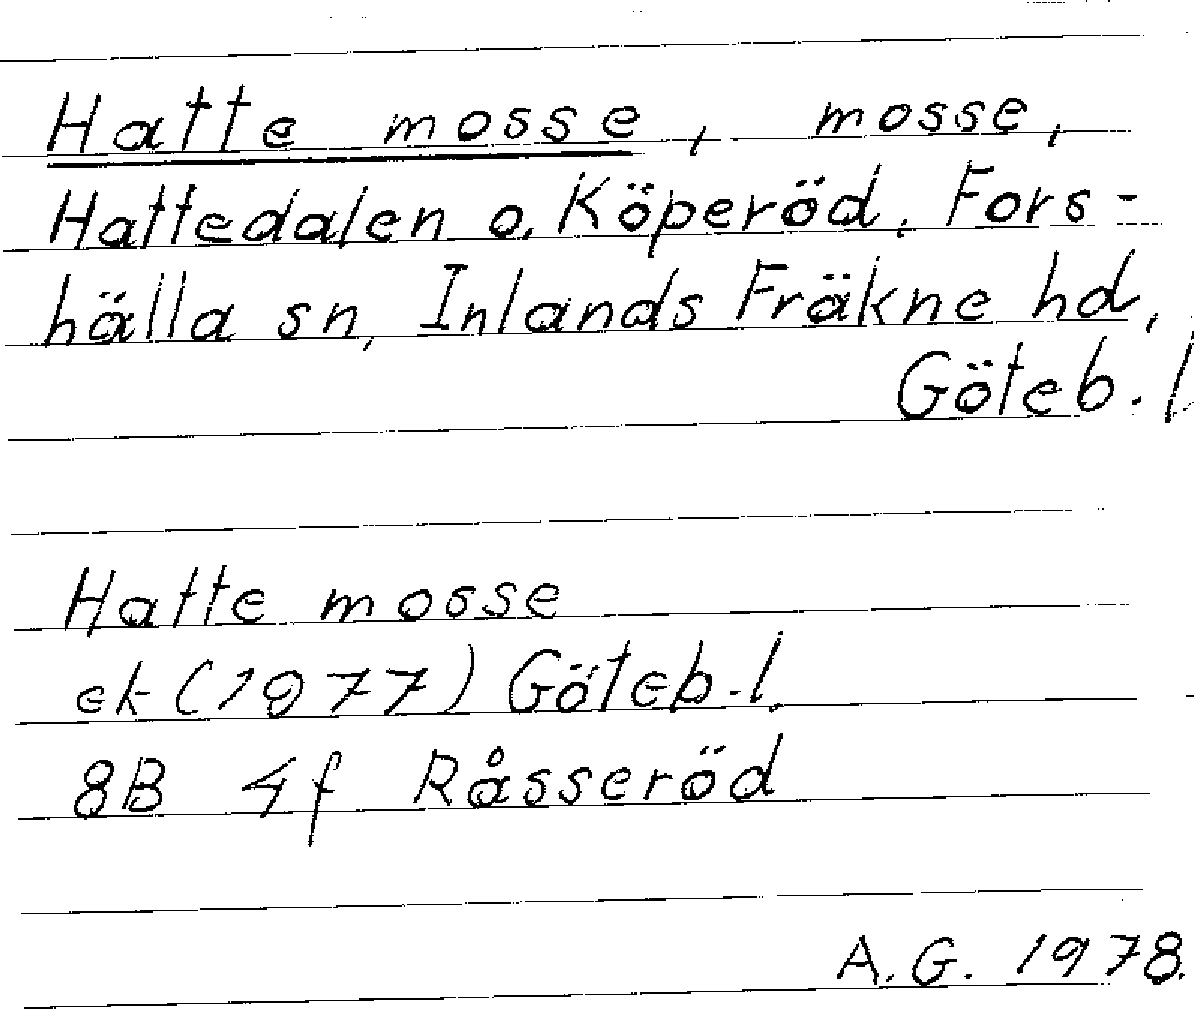 Hatte mosse, mosse,
Hattedalen o. Köperöd, Fors-
hälla sn, Inlands Fräkne hd,
Göteb. l
Hatte mosse
ek (1977) Göteb. l.
8B 4f Råsseröd
A. G. 1978.